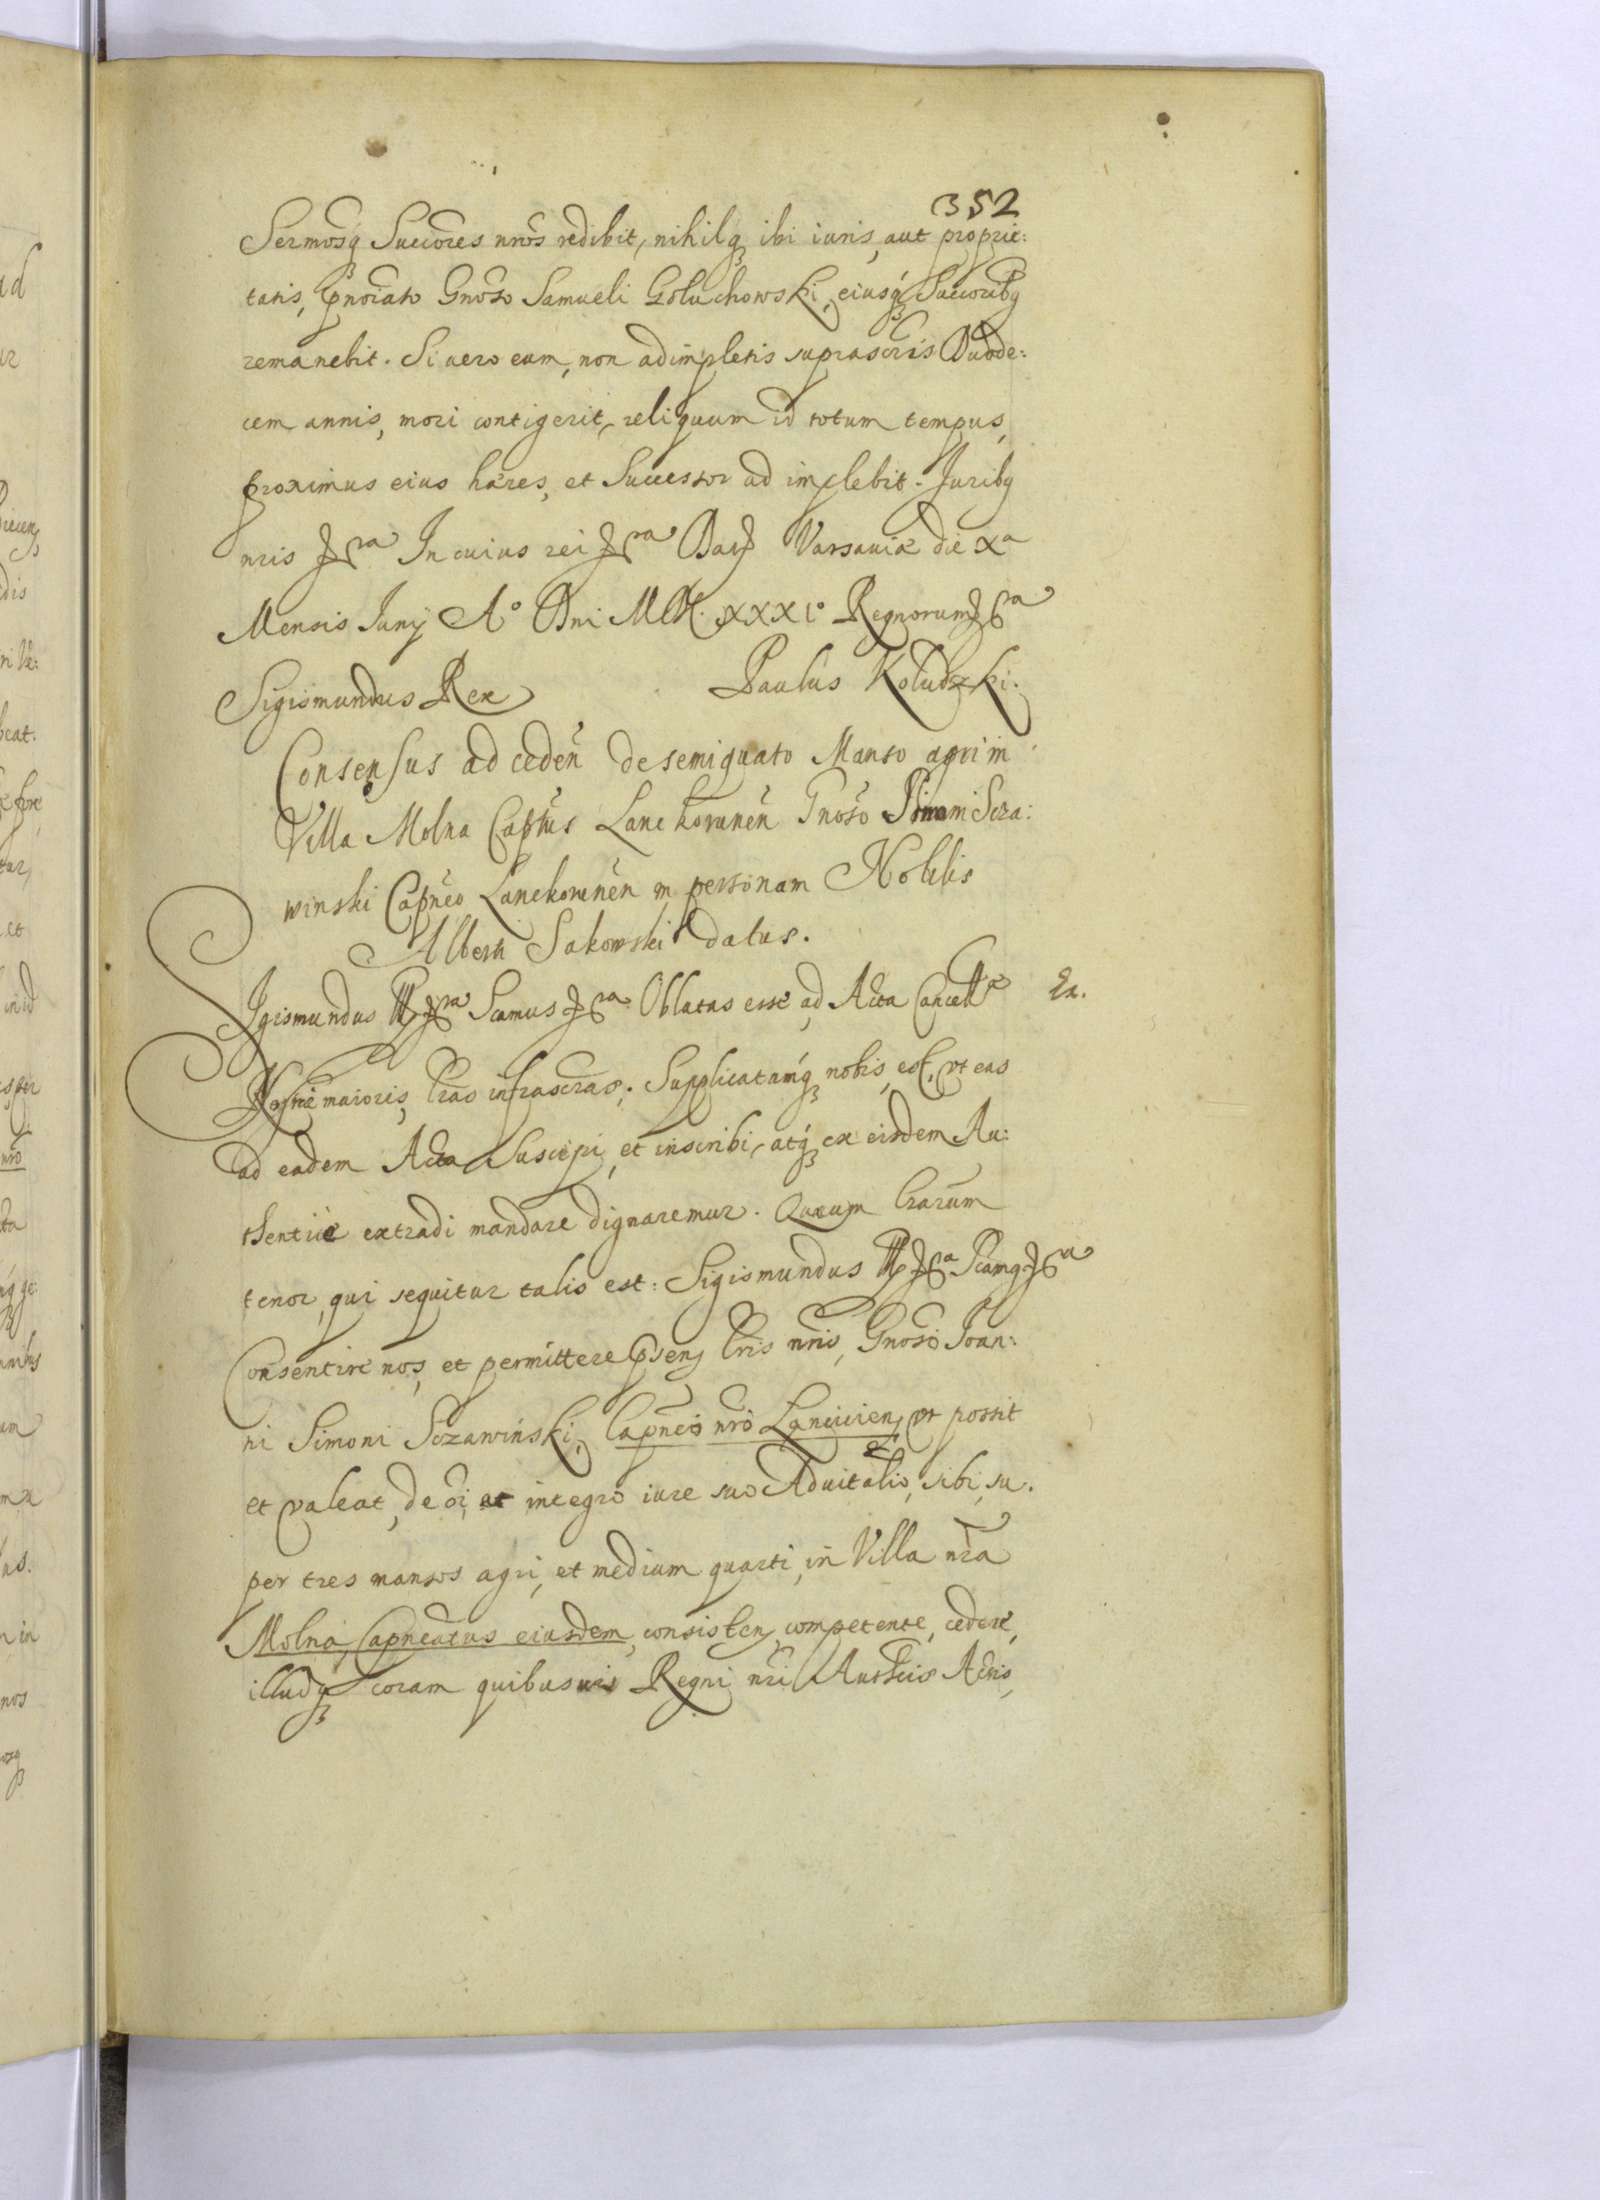 352
Sermosq Succores nros redibit, nihilq ibi iuris, aut proprie:
tatis, pnoiato Gnoso Samueli Goluchowski, eiusq Succoribq
remanebit. Si uero eum, non adimpletis suprascris Duode:
cem annis, mori contigerit, reliquum id totum tempus,
proximus eius haeres, et Successor ad implebit. Juribq
nris &ra In cuius rei &ra Dat Varsauiae die Xa
Mensis Iunij Ao Dni MDC. XXXIo Regnorum &ra
Sigismundus Rex Paulus Koludzki.
Consensus ad ceden de semiquato Manso agri in
Villa Molna Captus Lanckorunen Gnoso Scza:
winski Capneo Lanckorunen in personam Nobilis
Alberti Sakowski datus.
SIgismundus III &ra Scamus &ra Oblatas esse ad Acta Cancellae Ex.
Regni maioris, lras infrascras; Supplicatumq nobis, est, vt eas
ad eadem Acta Suscipi, et inscribi, atq ex eisdem Au:
thentice extradi mandare dignaremur. Quarum lrarum
tenor, qui sequitur talis est: Sigismundus III &ra Scamq &ra
Consentire nos, et permittere psen lris nris, Gnoso Ioan:
ni Simoni Sczawiński, Capneo nro Lancicien, vt possit
et valeat, de oi, et integro iure suo Aduitalio, sibi, su.
per tres mansos agri, et medium quarti, in Villa nra
Molna, Capneatus eiusdem, consisten, competente, cedere,
illudq coram quibusuis Regni nri Authcis Actis,